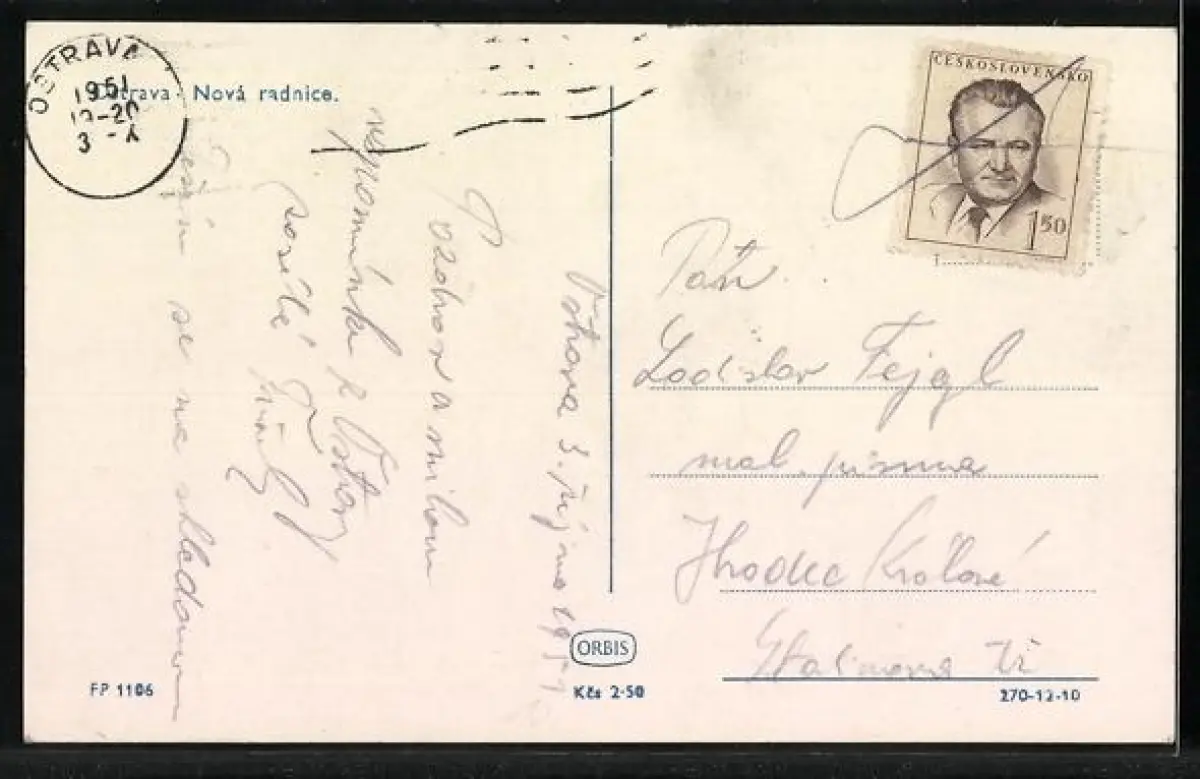 OSTRAVA
1951
3 -X
Ostrava · Nová radnice.
ČESKOSLOVENSKO
1 50
Ostrava 3. října 1951
Pozdrav a milou
vzpomínku z Ostravy
posílá
Těším se na shledanou
Pan
Ladislav Fejgl
mal. písma
Hradec Králové
Stalinova tř
ORBIS
FP 1106
Kčs 2·50
270-12-10